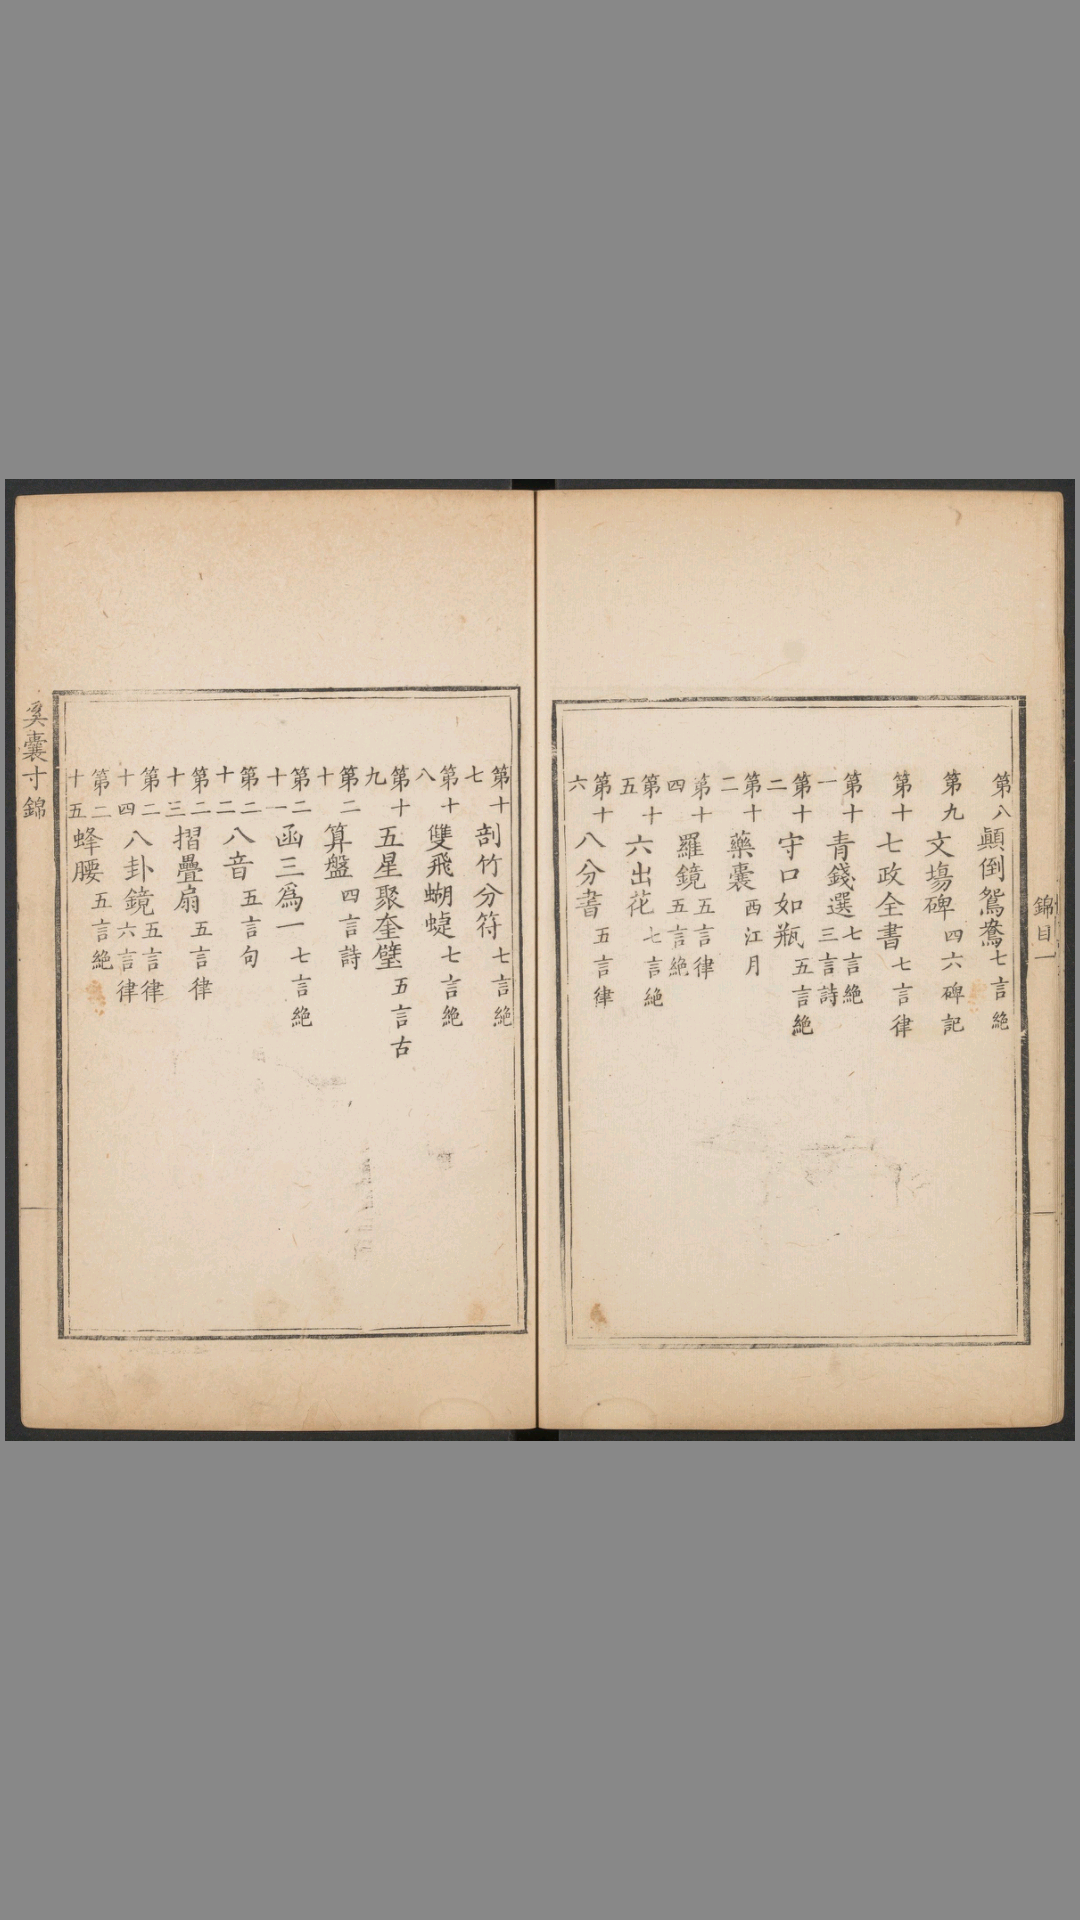 錦目一
第八顚倒鴛鴦七言絶
第九文塲碑四六碑記
第十七政全書七言律
第十一青錢選七言絶三言詩
第十二守口如瓶五言絶
第十二藥囊西江月
第十四羅鏡五言律五言絶
第十五六出花七言絶
第十六八分書五言律
第十七剖竹分符七言絶
第十八雙飛蝴蜨七言絶
第十九五星聚奎璧五言古
第二十算盤四言詩
第二十一函三爲一七言絶
第二十二八音五言句
第二十三摺疊扇五言律
第二十四八卦鏡五言律六言律
第二十五蜂腰五言絶
奚囊寸錦